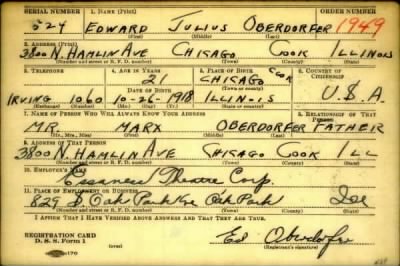 SERIAL NUMBER 1. NAME (Print) ORDER NUMBER
524 EDWARD JULIUS OBERDORFER 1949
(First) (Middle) (Last)
2. ADDRESS (Print)
3800 N. HAMLIN AVE CHICAGO COOK ILLINOIS
(Number and street or R. F. D. number) (Town) (County) (State)
3. TELEPHONE 4. AGE IN YEARS 5. PLACE OF BIRTH 6. COUNTRY OF CITIZENSHIP
21 CHICAGO COOK
DATE OF BIRTH (Town or county)
IRVING 1060 10-26-1918 ILLINOIS U.S.A.
(Exchange) (Number) (Mo.) (Day) (Yr.) (State or country)
7. NAME OF PERSON WHO WILL ALWAYS KNOW YOUR ADDRESS 8. RELATIONSHIP OF THAT PERSON
MR. MARX OBERDORFER FATHER
(Mr., Mrs., Miss) (First) (Middle) (Last)
9. ADDRESS OF THAT PERSON
3800 N. HAMLIN AVE CHICAGO COOK ILL
(Number and street or R. F. D. number) (Town) (County) (State)
10. EMPLOYER'S NAME
Essaness Theatre Corp.
11. PLACE OF EMPLOYMENT OR BUSINESS
829 S Oak Park Ave Oak Park Ill
(Number and street or R. F. D. number) (Town) (County) (State)
I AFFIRM THAT I HAVE VERIFIED ABOVE ANSWERS AND THAT THEY ARE TRUE.
REGISTRATION CARD
D. S. S. Form 1 Ed Oberdorfer
(Registrant's signature)